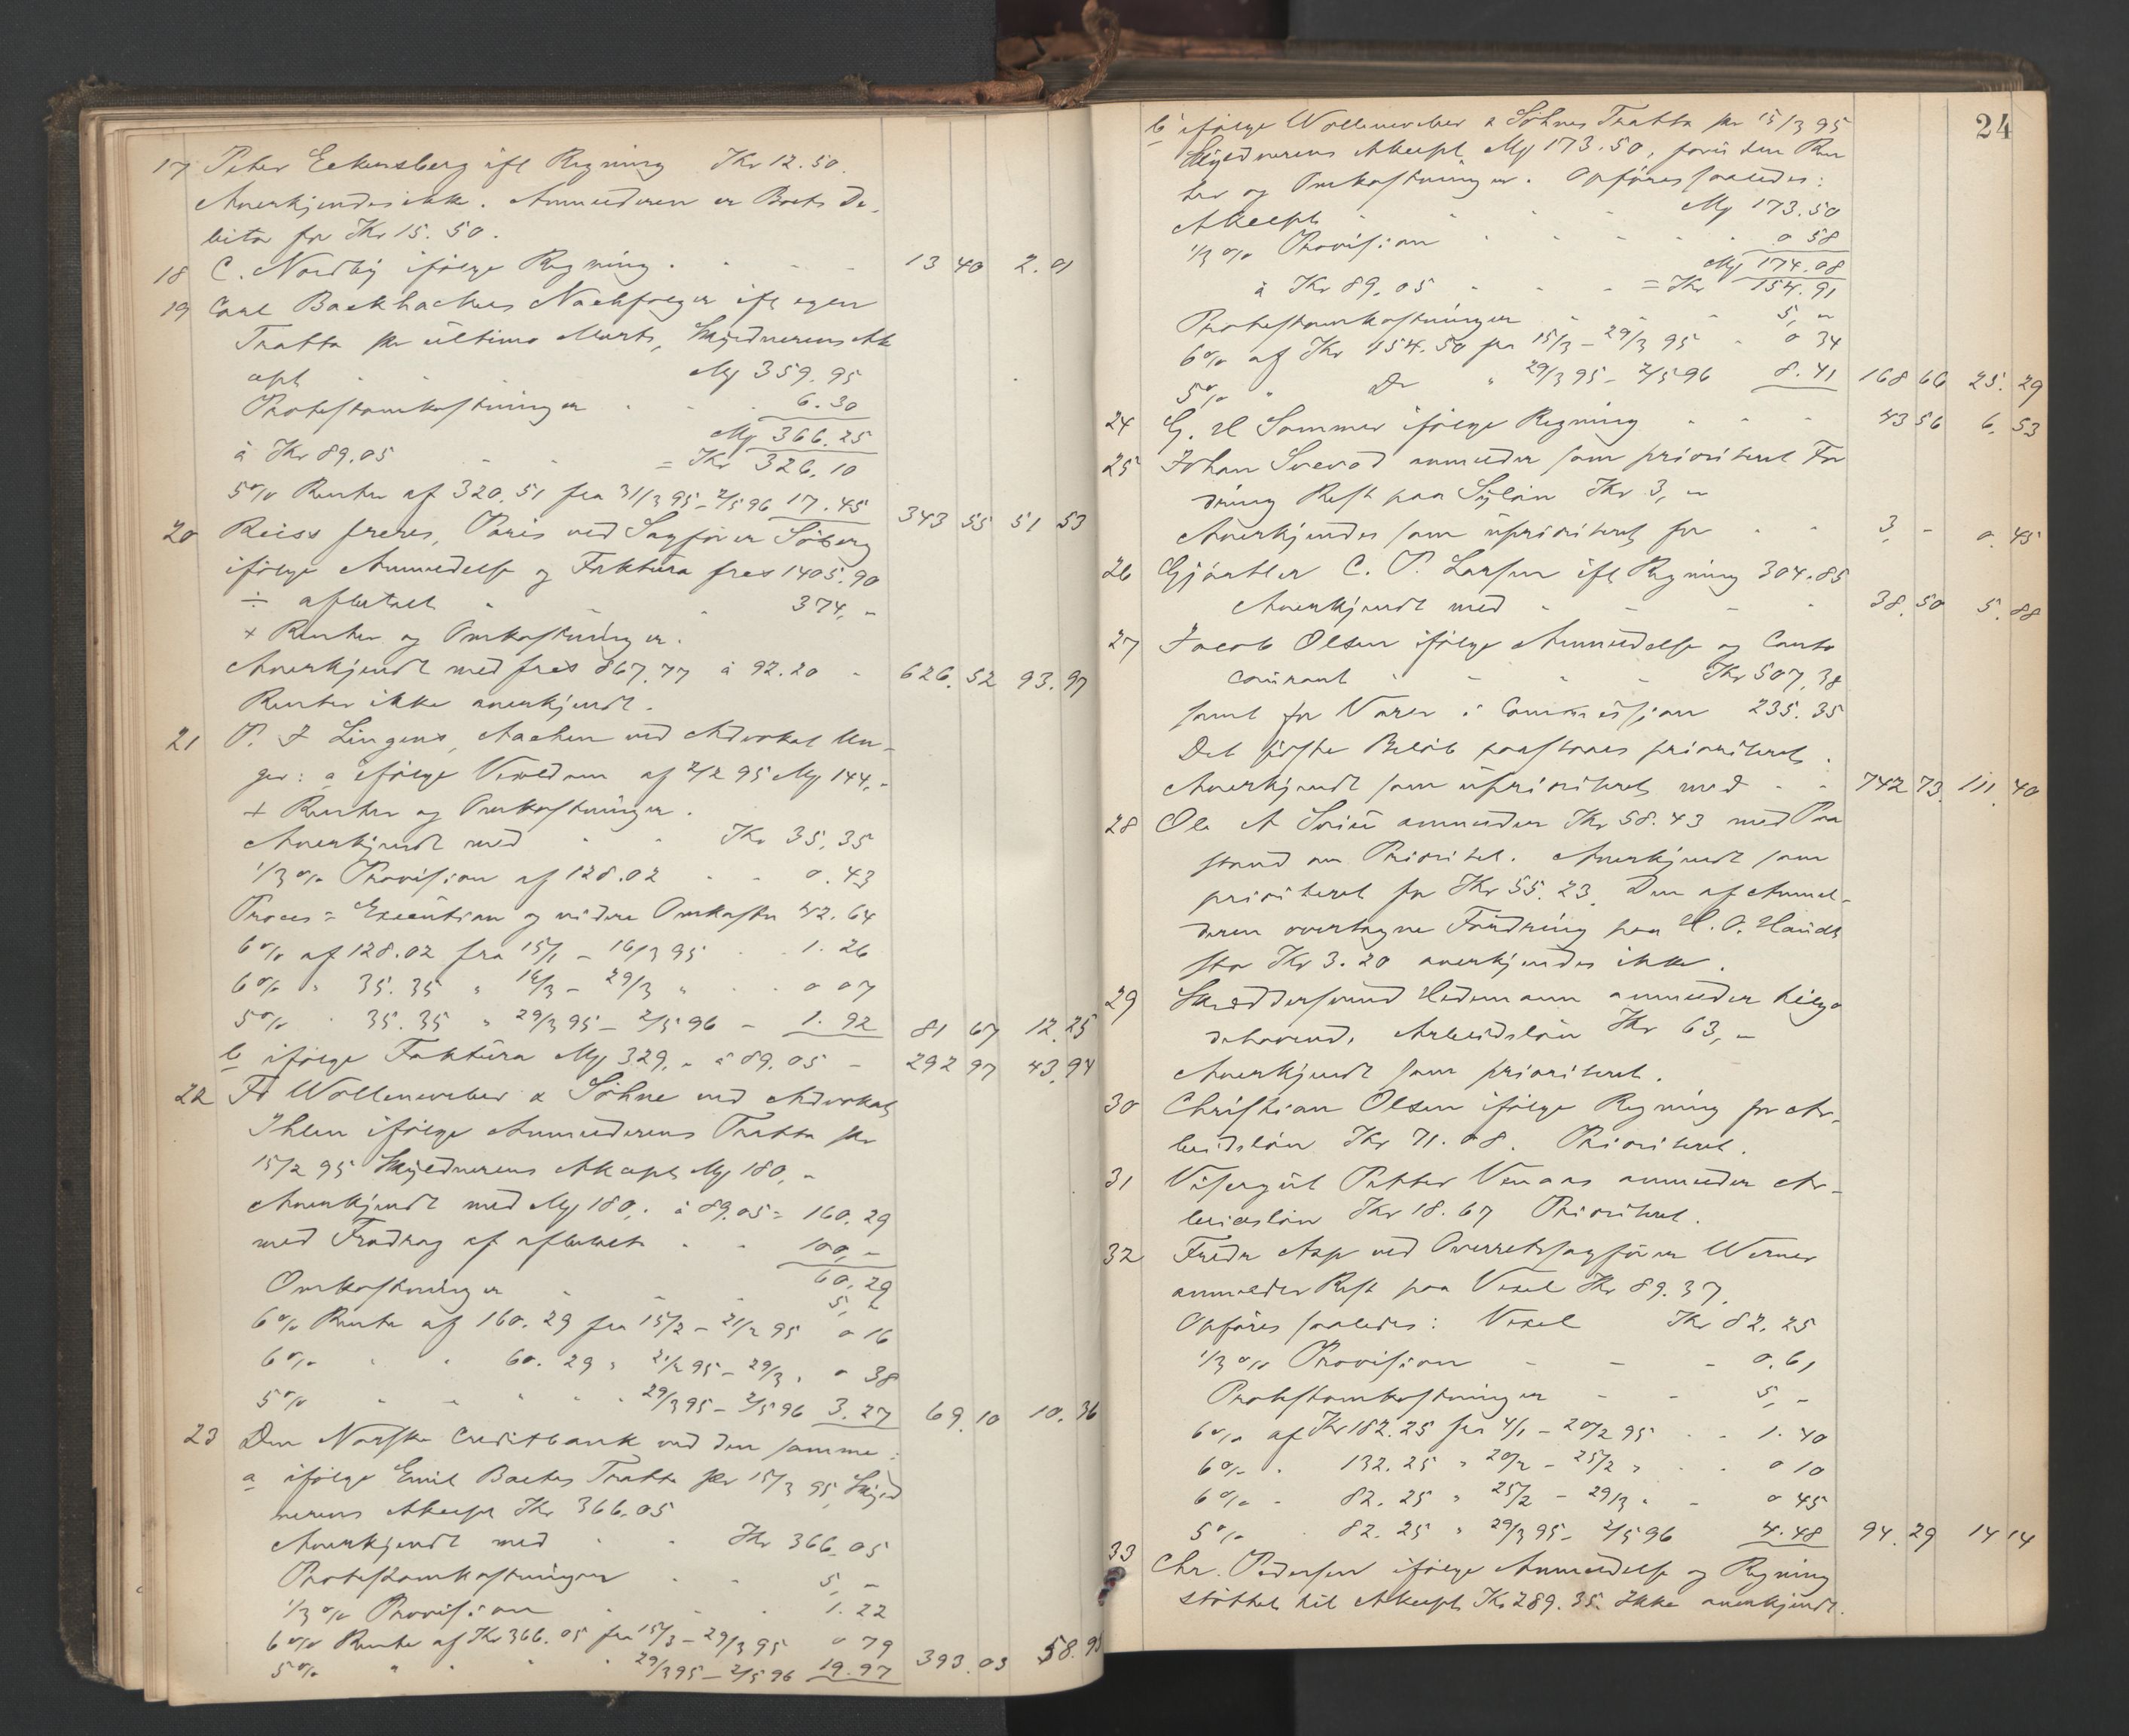 17 Peter Eckersberg ifl Regning Kr 12.50.
Anerkjendes ikke. Anmelderen er Boets De-
bitor for Kr 15.50.
18 C. Nordby ifølge Regning. 13 40 2.01
19 Carl Backhackers Nachfolger ifl egen
Tratta pr ultimo Marts, Skyldnerens Ak
cept Mg 359.95
Protestomkostninger 6.30
Mg 366.25
à Kr 89.05 = Kr 326.10
5% Renter af 320.51 fra 31/3 95 - 2/5 96 17.45 343 55 51 53
20 Reiss freres, Paris ved Sagfører Söberg
ifølge Anmeldelse og Faktura frcs 1405.90
÷ afbetalt 374,-
+ Renter og Omkostninger.
Anerkjendt med frcs 867.77 à 92.20 626.52 93.97
Renter ikke anerkjendt.
21 P. J Lingens, Aachen ved Advokat Un-
ger: a ifølge Veddom af 2/2 95 Mg 144,-
+ Renter og Omkostninger.
Anerkjendt med Kr 35.35
1/3% Provision af 128.02 0.43
Proces= Execution og videre Omkostn 42.64
6% af 128.02 fra 15/1 - 16/3 95 1.26
6% " 35.35 " 16/3 - 29/3 " 0 07
5% " 35.35 " 29/3 95 - 2/5 96 - 1.92 81 67 12.25
b ifølge Faktura Mg 329,- à 89.05 - 292 97 43.94
22 Fr Wollenweber & Söhne ved Advokat
Ihlen ifølge Anmelderens Tratta pr
15/2 95 Skyldnerens Akcept Mg 180,-
Anerkjendt med Mg 180,. à 89.05= 160.29
med Fradrag af afbetalt 100,-
60.29
Omkostninger 5,-
6% Rente af 160.29 fra 15/2 - 21/2 95 0 16
6% " " 60.29 " 21/2 95 - 29/3 " 0 38
5% " " " " 29/3 95 - 2/5 96 3.27 69.10 10.36
23 Den Norske Creditbank ved den samme:
a ifølge Emil Baches Tratta pr 15/3 95, Skyld
nerens Akcept Kr 366.05
Anerkjendt med Kr 366.05
Protestomkostninger 5,-
1/3% Provision 1.22
6% Rente af Kr 366.05 fra 15/3 - 29/3 95 0 79
5% " " " " 29/3 95 - 2/5 96 19.97 393.03 58.95
24
b ifølge Wollenweber & Söhnes Tratta pr 15/3 95
Skyldnerens Akcept, Mg 173.50, foruden Ren
ter og Omkostninger. Opføres saaledes:
Akcept Mg 173.50
1/3% Provision 0 58
Mg 174.08
à Kr 89.05 = Kr 154.91
Protestomkostninger 5,-
6% af Kr 154.50 fra 15/3 - 29/3 95 0 34
5% " Do " 29/3 95 - 2/5 96 8.41 168 66 25.29
24 G. H Sommer ifølge Regning 43 56 6.53
25 Johan Svevad anmelder som prioriteret For
dring Rest paa Sylön Kr 3,-
Anerkjendes som uprioriteret for 3,- 0.45
26 Gjörtler C. P. Larsen ifl Regning 304.85
Anerkjendt med 38.50 5.88
27 Jacob Olsen ifølge Anmeldelse og Conto
courant Kr 507.38
samt for Varer i Commission 235.35
Det sidste Beløb paastaaes prioriteret.
Anerkjendt som uprioriteret med 742 73. 111.40
28 Ole A anmelder Kr 58.43 med Paa
stand om Prioritet. Anerkjendt som
prioriteret for Kr 55.23. Den af Anmel-
deren overtagne Fordring paa H. O.
Kr 3.20 anerkjendes ikke.
29 Skræddersvend Hedemann anmelder tilgo
dehavende Arbeidslön Kr 63,-
Anerkjendt som prioriteret.
30 Christian Olsen ifølge Regning for Ar-
beidslön Kr 71.08. Prioriteret.
31 Visergut Petter Venaas anmelder Ar-
beidslön Kr 18.67 Prioriteret.
32 Fredr Asp ved Overretssagfører Werner
anmelder Rest paa Vexel Kr 89.37.
Opføres saaledes: Vexel Kr 82.25
1/3% Provision 0.61
Protestomkostninger 5,-
6% af Kr 182.25 fra 4/1 - 20/2 95 1.40
6% " 132.25 " 20/2 - 25/2 " 0 10
6% " 82.25 " 25/2 - 29/3 " 0 45
5% " 82.25 " 29/3 95 - 2/5 96 4.48 94.29 14 14
33 Chr. Pedersen ifølge Anmeldelse og Regning
støttet til Akcept Kr 289.35. Ikke anerkjendt.